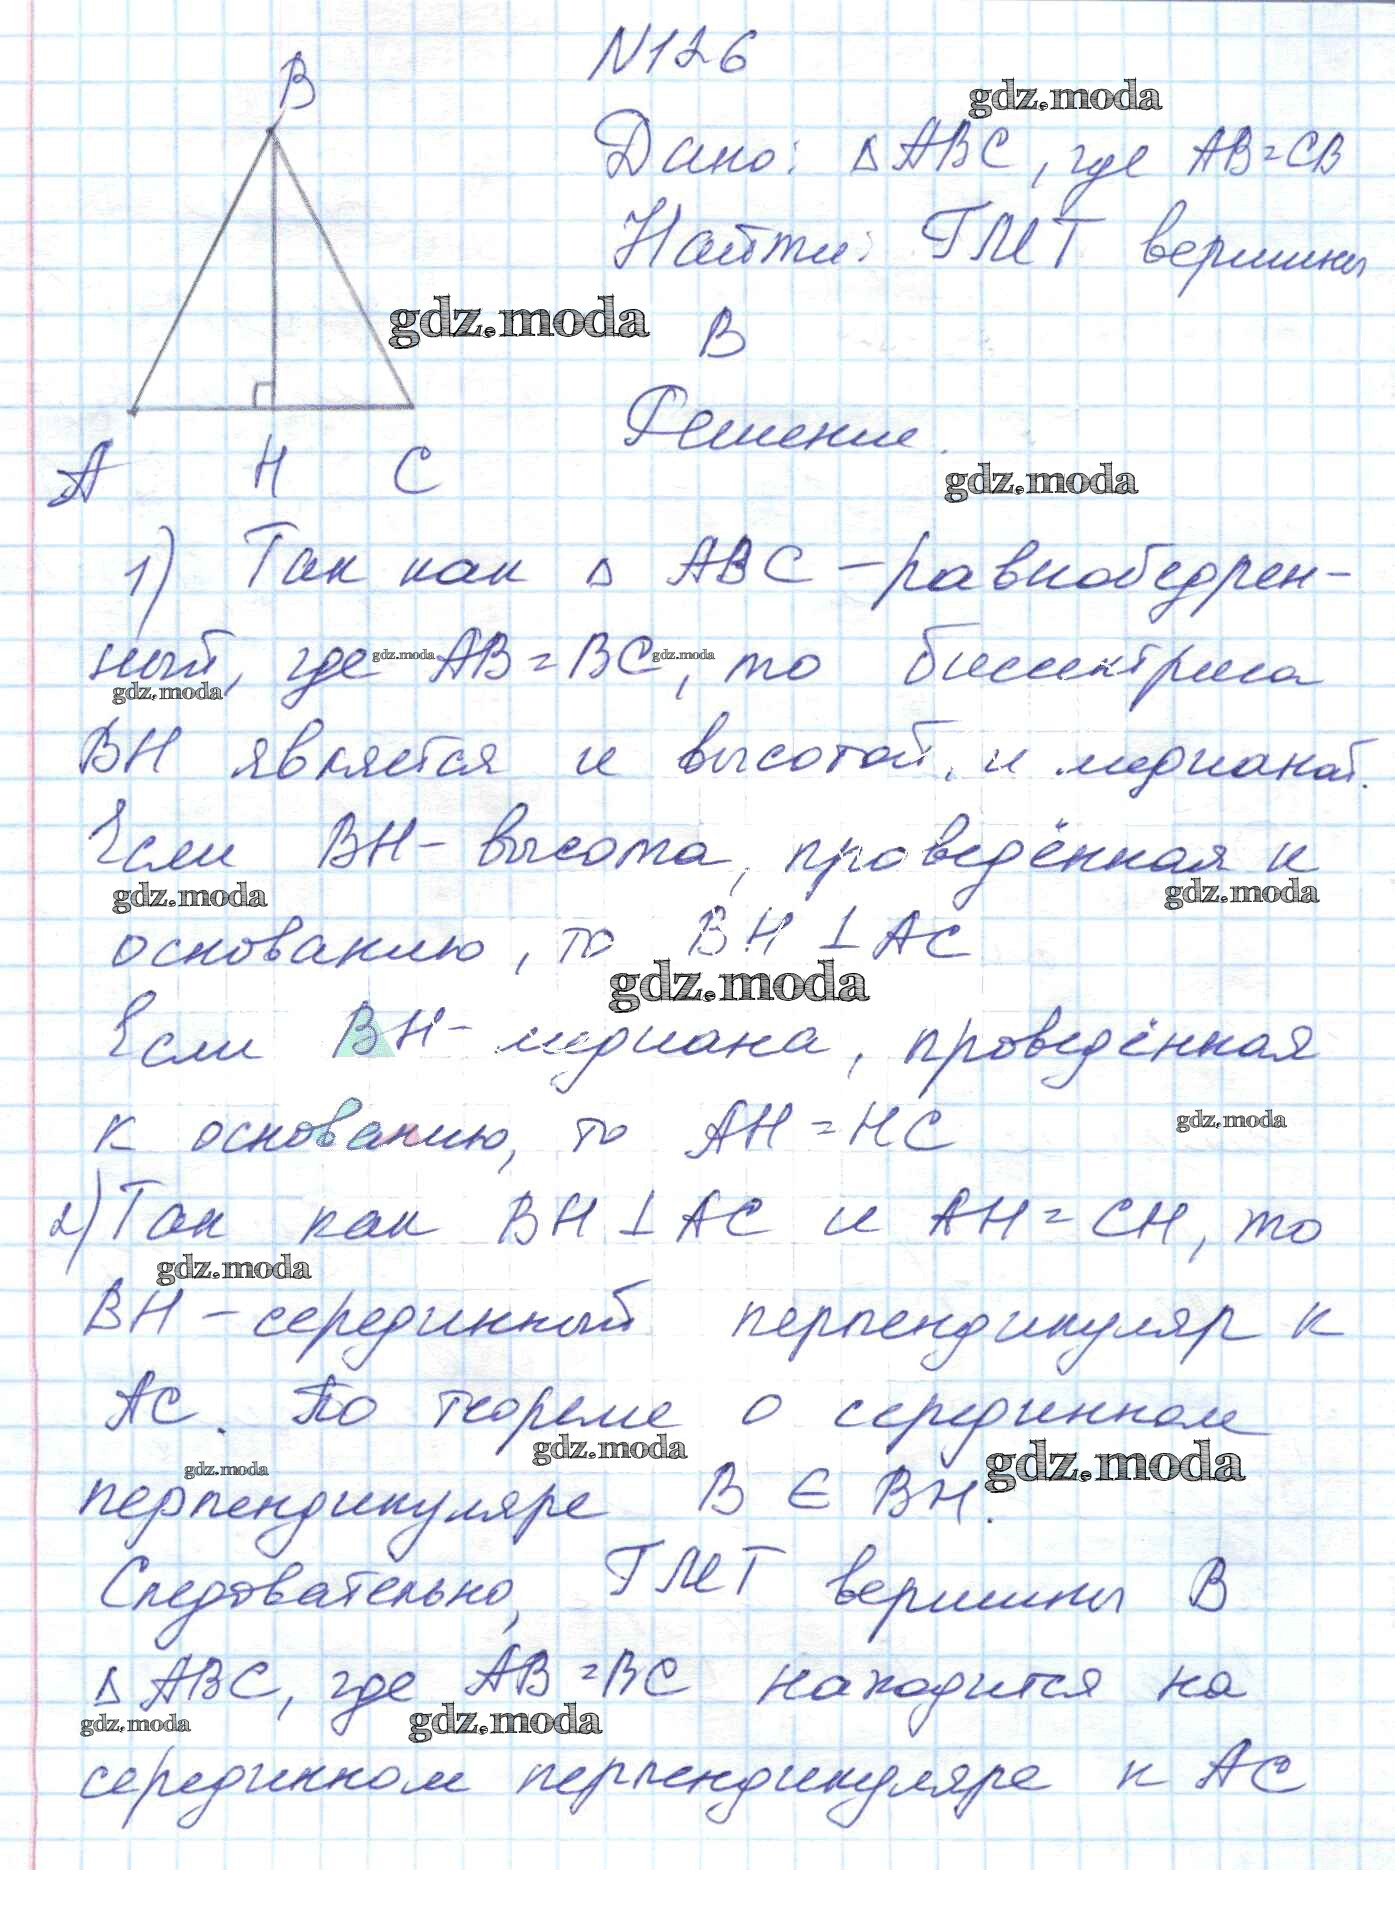 N126
B
gdz.moda
Дано: △ ABC, где AB=CB
Найти: ГМТ вершины
gdz.moda
B
Решение.
A H C
gdz.moda
1) Так как △ ABC – равнобедрен-
ный, где gdz.moda AB=BC gdz.moda, то биссектриса
gdz.moda
BH является и высотой, и медианой.
Если BH – высота, проведённая к
gdz.moda gdz.moda
основанию, то BH ⊥ AC
gdz.moda
Если BH – медиана, проведённая
к основанию, то AH = HC
gdz.moda
2) Так как BH ⊥ AC и AH = CH, то
gdz.moda
BH – серединный перпендикуляр к
AC. По теореме о серединном
gdz.moda gdz.moda gdz.moda
перпендикуляре B ∈ BH.
Следовательно, ГМТ вершины B
△ ABC, где AB=BC находится на
gdz.moda gdz.moda
серединном перпендикуляре к AC